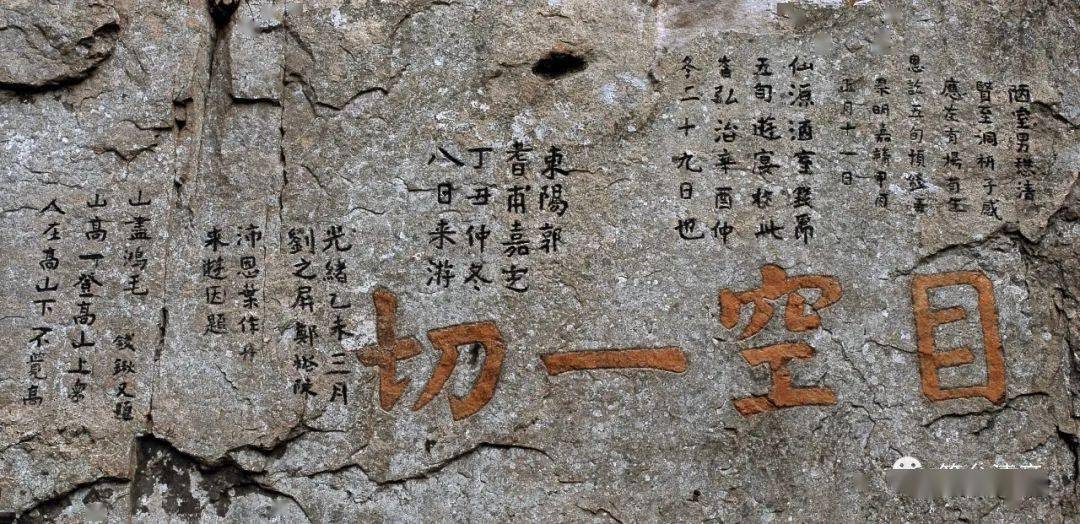 目空一切
陋室男清
賢至洞柄子咸
應左有楊苟生
五旬
明嘉靖甲
正月十一日
仙源酒室
五旬遊宴於此
旹弘治辛酉仲
冬二十九日也
東陽郭
耆甫嘉定
丁丑仲冬
八日来游
光緒乙未三月
劉之屏鄭崧陳
沛恩葉作丹
来遊因題
人在高山下不覺高
山高一登高山上眾
山盡鴻毛
又題